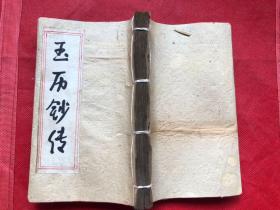 玉历钞传